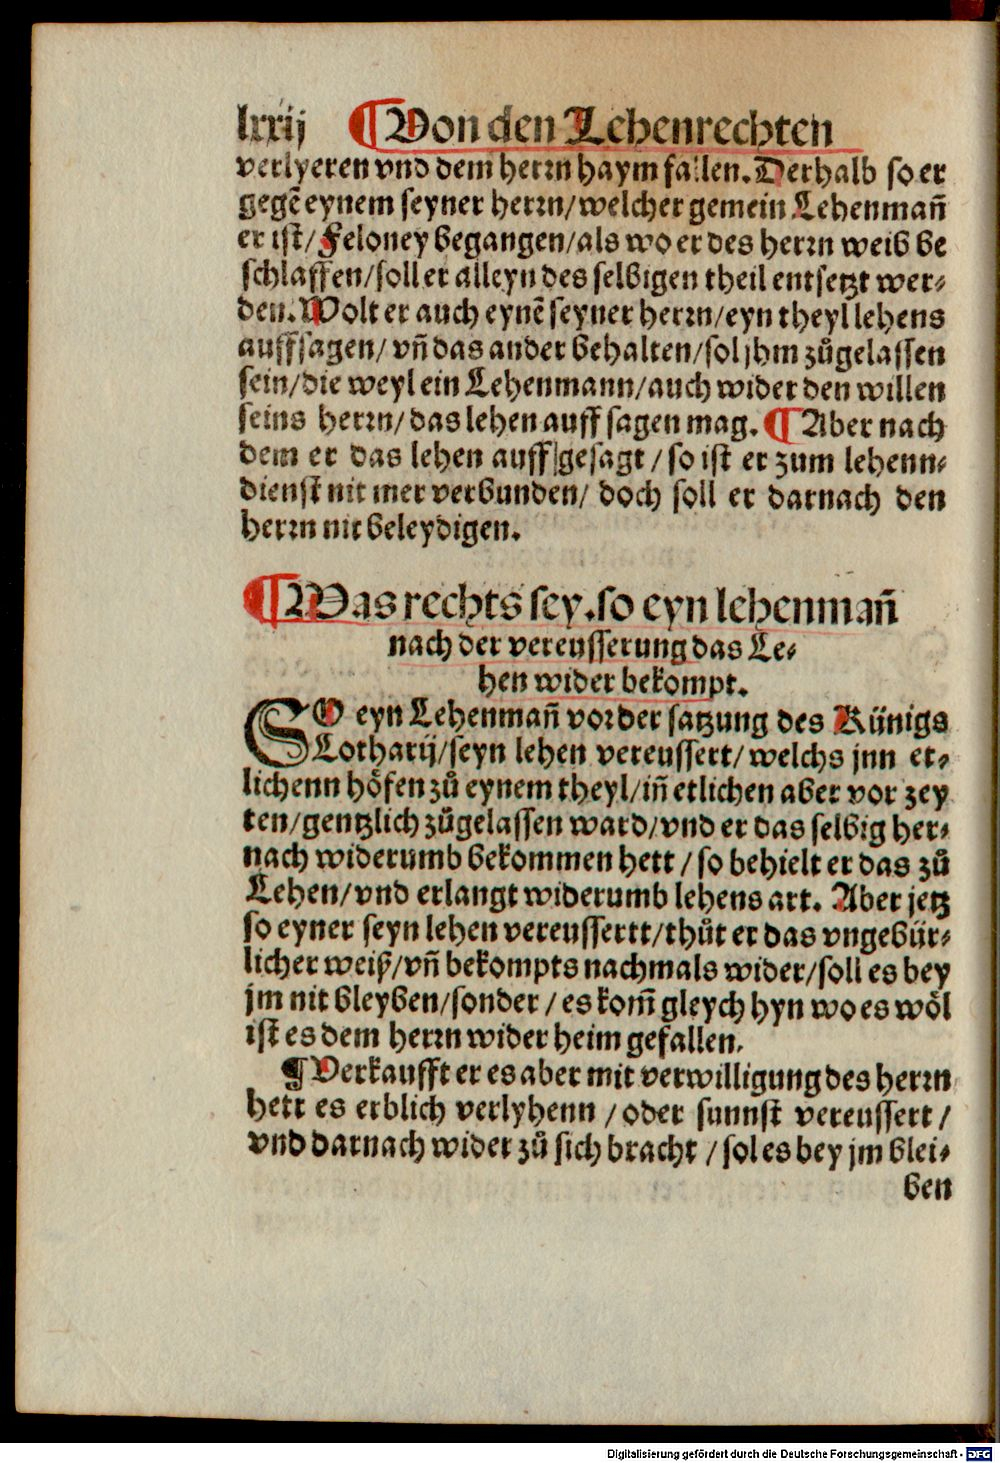 lxxij ¶Von den Lehenrechten
verlyeren vnd dem herrn haym fallen. Derhalb so er
gegē eynem seyner herrn/welcher gemein Lehenmañ
er ist/Feloney begangen/als wo er des herrn weib be
schlaffen/soll er alleyn des selbigen theil entsetzt wer⸗
den. Wolt er auch eynē seyner herrn/eyn theyl lehens
auffsagen/vñ das ander behalten/sol jhm zůgelassen
sein/die weyl ein Lehenmann/auch wider den willen
seins herrn/das lehen auff sagen mag. ¶Aber nach
dem er das lehen auff gesagt/so ist er zum lehenn⸗
dienst nit mer verbunden/ doch soll er darnach den
herrn nit beleydigen.
¶Was rechts sey.so eyn lehenmañ
nach der vereusserung das Le⸗
hen wider bekompt.
SO eyn Lehenmañ vor der satzung des Künigs
Lotharij/seyn lehen vereussert/welchs jnn et⸗
lichenn höfen zů eynem theyl/iñ etlichen aber vor zey
ten/gentzlich zůgelassen ward/vnd er das selbig her⸗
nach widerumb bekommen hett/so behielt er das zů
Lehen/vnd erlangt widerumb lehens art. Aber jetz
so eyner seyn lehen vereussertt/thůt er das vngebür⸗
licher weiß/vñ bekompts nachmals wider/soll es bey
jm nit bleyben/sonder/es kom̄ gleych hyn wo es wöl
ist es dem herrn wider heim gefallen.
¶Verkaufft er es aber mit verwilligung des herrn
hett es erblich verlyhenn/oder sunnst vereussert/
vnd darnach wider zů sich bracht/sol es bey jm blei⸗
ben
Digitalisierung gefördert durch die Deutsche Forschungsgemeinschaft - DFG